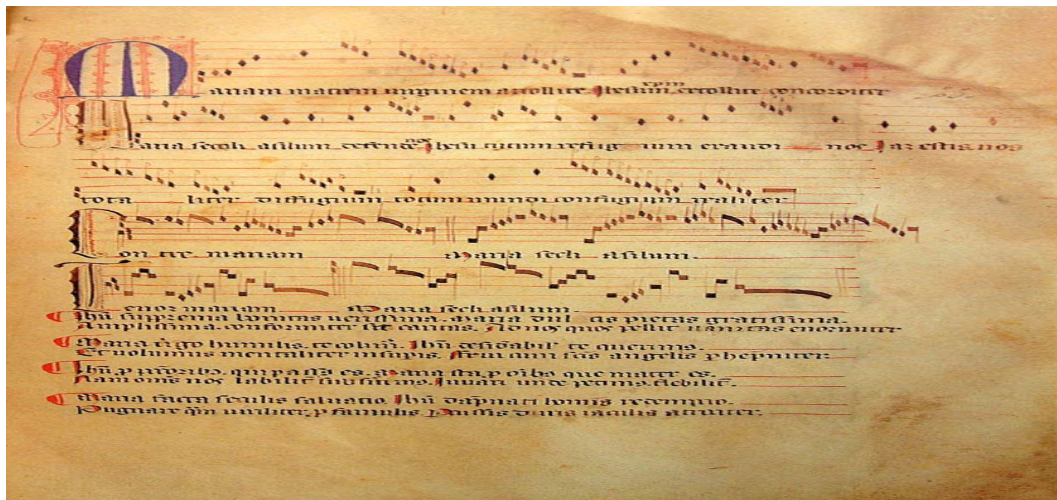 Mariam matrem uirginem attollite. Ihesum xpm extollite concorditer
Maria secli asilum defende nos Ihesu tutum refugium exaudi nos Iam estis nos
totaliter diffugium totum mundi confugium realiter
Contre mariam Maria secli asilum.
Tenor mariam Maria secli asilum
Ihu suprema bonitas uerissima. Maria dulcis pietas gratissima.
Amplissima conformiter sit caritas. Ad nos quos pellit uanitas enormiter
Maria ugo humilis te colim. Ihu desidabil te querimus
Et uolumus mentaliter in supis. Frui cum scis angelis phepniter
Ihu p pctoribus qui passus es. Maria sta p oibus que mater es.
Nam oms nos labilit subsistimus. Iuuari unde petimus flebilit.
Maria facta seculis saluatio. Ihu dapnati hominis redemptio.
Pugnare qm uiriliter p famulis. Pcussis duris iaculis atrociter.